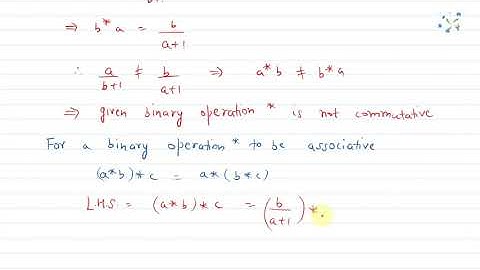 ⇒ b * a = b/(a+1)
∴ a/(b+1) ≠ b/(a+1) ⇒ a * b ≠ b * a
⇒ given binary operation * is not commutative
For a binary operation * to be associative
(a * b) * c = a * (b * c)
L.H.S. = (a * b) * c = (b/(a+1)) *